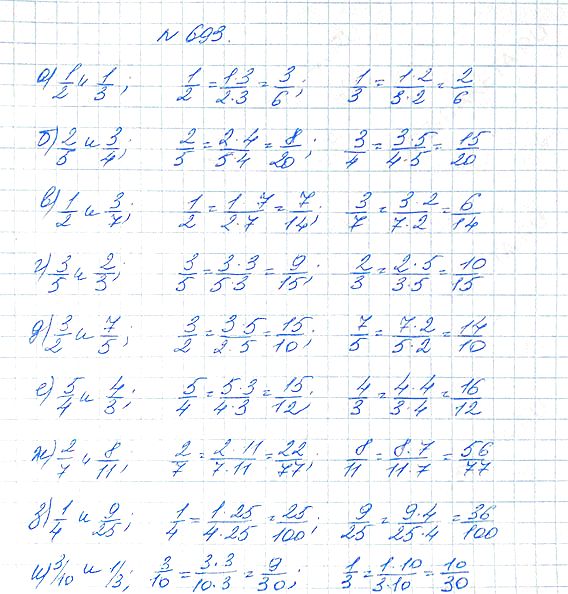 № 693.
а) 1/2 и 1/3; 1/2 = 1·3/2·3 = 3/6; 1/3 = 1·2/3·2 = 2/6
б) 2/5 и 3/4; 2/5 = 2·4/5·4 = 8/20; 3/4 = 3·5/4·5 = 15/20
в) 1/2 и 3/7; 1/2 = 1·7/2·7 = 7/14; 3/7 = 3·2/7·2 = 6/14
г) 3/5 и 2/3; 3/5 = 3·3/5·3 = 9/15; 2/3 = 2·5/3·5 = 10/15
д) 3/2 и 7/5; 3/2 = 3·5/2·5 = 15/10; 7/5 = 7·2/5·2 = 14/10
е) 5/4 и 4/3; 5/4 = 5·3/4·3 = 15/12; 4/3 = 4·4/3·4 = 16/12
ж) 2/7 и 8/11; 2/7 = 2·11/7·11 = 22/77; 8/11 = 8·7/11·7 = 56/77
з) 1/4 и 9/25; 1/4 = 1·25/4·25 = 25/100; 9/25 = 9·4/25·4 = 36/100
и) 3/10 и 1/3; 3/10 = 3·3/10·3 = 9/30; 1/3 = 1·10/3·10 = 10/30